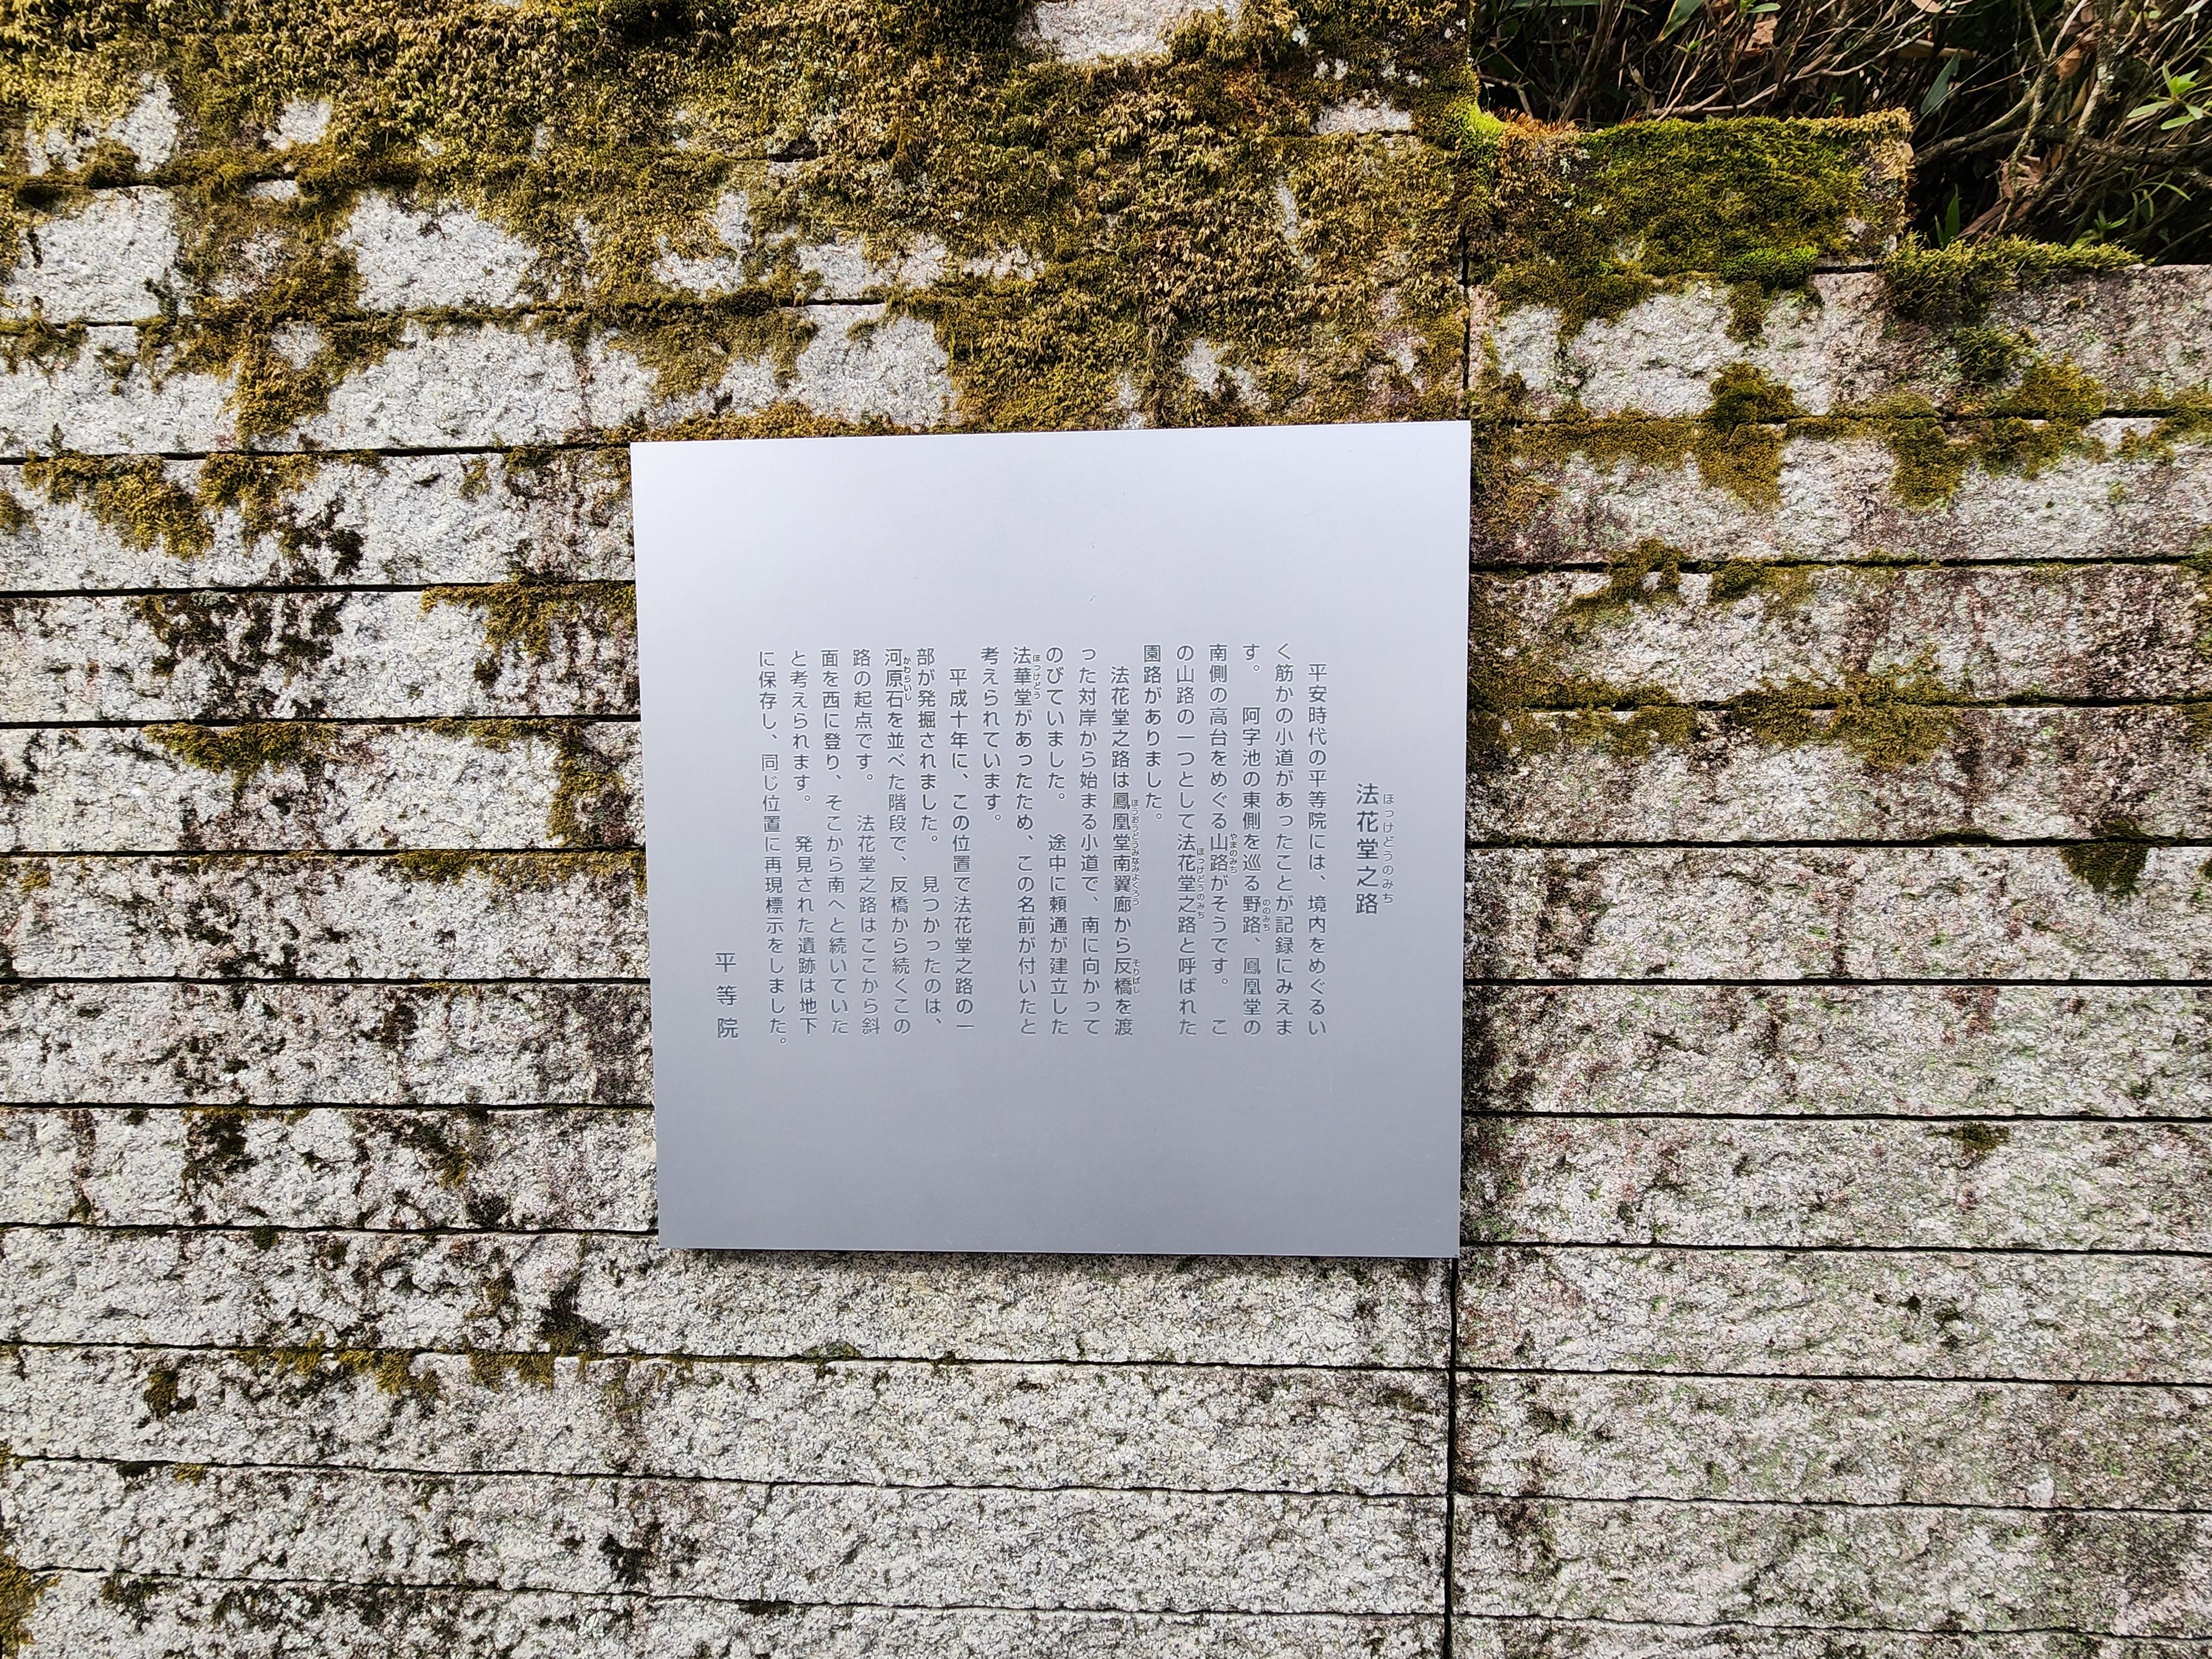 法花堂之路
ほっけどうのみち
平安時代の平等院には、境内をめぐるい
く筋かの小道があったことが記録にみえま
す。 阿字池の東側を巡る野路、鳳凰堂の
ののみち
南側の高台をめぐる山路がそうです。 こ
やまのみち
の山路の一つとして法花堂之路と呼ばれた
ほっけどうのみち
園路がありました。
法花堂之路は鳳凰堂南翼廊から反橋を渡
ほうおうどうみなみよくろう そりばし
った対岸から始まる小道で、南に向かって
のびていました。 途中に頼通が建立した
法華堂があったため、この名前が付いたと
ほっけどう
考えられています。
平成十年に、この位置で法花堂之路の一
部が発掘されました。 見つかったのは、
河原石を並べた階段で、反橋から続くこの
かわらいし
路の起点です。 法花堂之路はここから斜
面を西に登り、そこから南へと続いていた
と考えられます。 発見された遺跡は地下
に保存し、同じ位置に再現標示をしました。
平等院